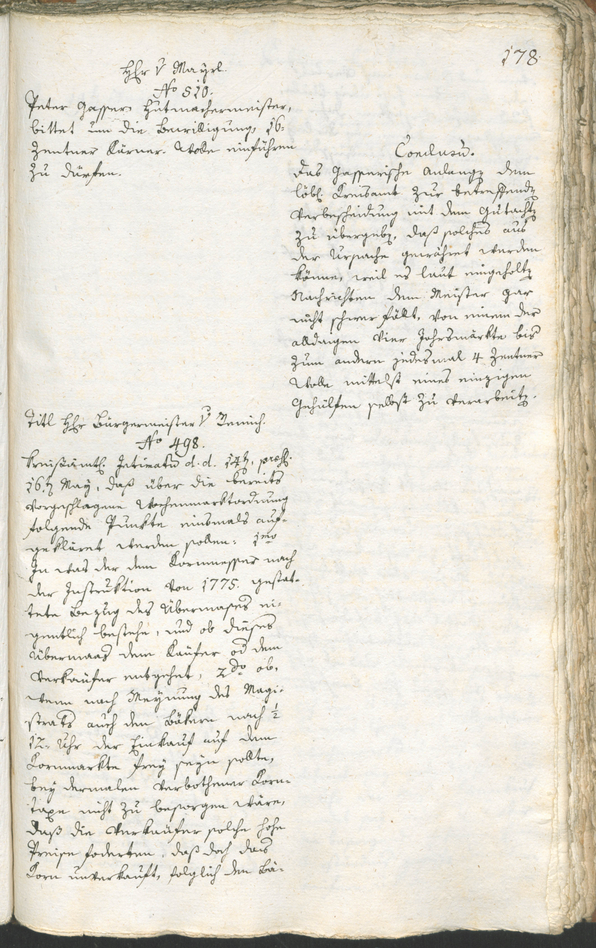 178.
Hhr v Mayrl.
No 510.
Peter Gasser Hutmachermeister,
bittet um die Bewilligung, 16.
Zentner Kärner Wolle einführen
zu dürfen.
Conclusum.
Das Gasserische Anlangen dem
löbl. Kreisamt zur betreffenden
Verbescheidung mit dem Gutachten
zu übergeben, daß solches aus
der Ursache gewähret werden
könne, weil es laut eingeholten
Nachrichten dem Meister gar
nicht schwer fällt, von einem der
alldasigen vier Jahrsmärkte bis
zum andern jedesmal 4 Zentner
Wolle mittelst eines einzigen
Gehülfen selbst zu verarbeiten.
Titl Hhr Bürgermeister v
No 498.
Kreisämtl. Intimatum d. d. 14t, praes.
16ten May, daß über die bereits
vorgeschlagene Wochenmarktordnung
folgende Punkte einsmals auf-
geklärt werden sollen: 1mo
In was der dem Kornmesser nach
der Instruktion von 1775. gestat-
tete Bezug des Übermaßes ei-
gentlich bestehe, und ob dieses
Übermaas dem Käufer od dem
Verkäufer entgehet, 2do ob,
wenn nach Meynung des Magi-
strats auch den Bäkern nach ½
12. Uhr der Einkauf auf dem
Kornmarkte frey seyn sollte,
bey dermalen verbothener Korn-
taxe nicht zu besorgen wäre,
daß die Verkäufer solche hohe
Preise foderten, daß doch das
Korn unverkauft, folglich den Bä-